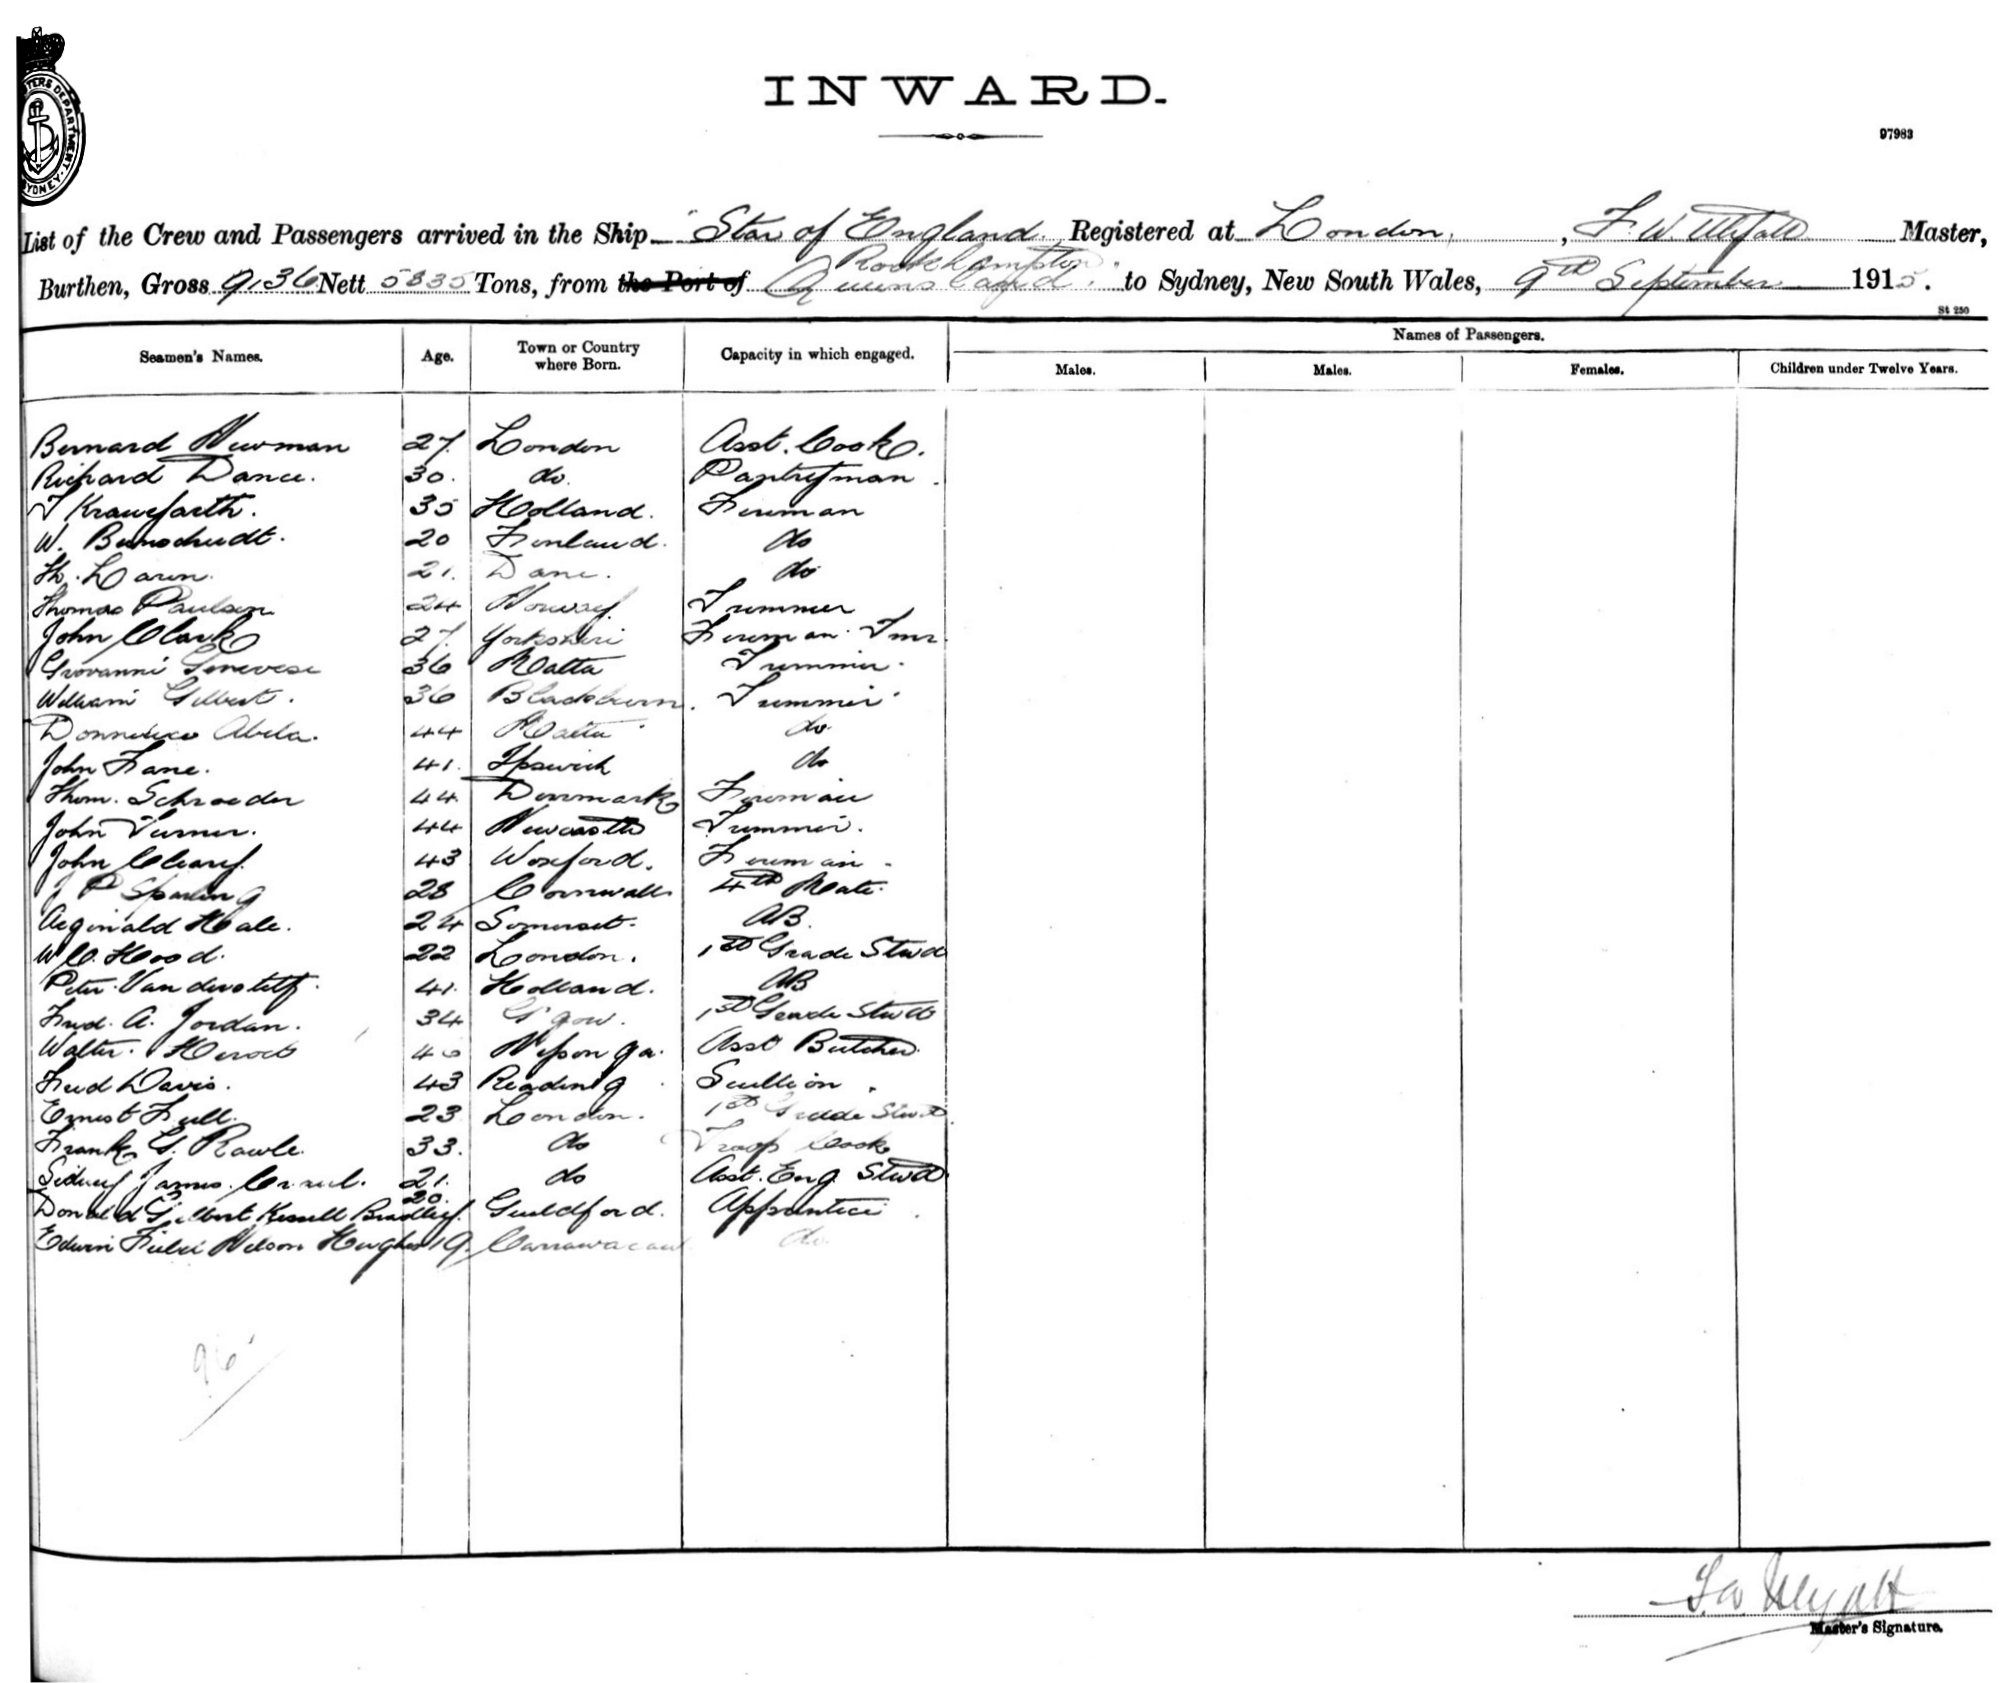 INWARD.
97983
List of the Crew and Passengers arrived in the Ship "Star of England Registered at London, F. W. Wyatt Master,
Rockhampton
Burthen, Gross 9136 Nett 5835 Tons, from the Port of Queensland. to Sydney, New South Wales, 9th September 1915.
St 250
Seamen's Names. Age. Town or Country where Born. Capacity in which engaged. Names of Passengers.
Males. Males. Females. Children under Twelve Years.
Bernard Newman 27. London Asst. Cook.
Richard Dance. 30. do. Pantryman.
35 Holland. Fireman
W. 20 Finland. do
Th. Laren. 21. Dane. do
Thomas Paulsen 24 Norway Trimmer
John Clark 27. Yorkshire Fireman. Tmr.
Giovanni Genevese 36 Malta Trimmer.
William Gilbert. 36 Blackburn. Trimmer.
Abela. 44 Malta do.
John Fane. 41. Ipswich do
Thom. Schroeder 44. Denmark Fireman
John Turner. 44 Newcastle Trimmer.
John Cleary. 43 Wexford. Fireman.
J P Sparling 28 Cornwall 4th Mate.
Reginald Hale. 24 Somerset. AB.
W C. Hood. 22 London. 1st Grade Stwd
Peter. 41. Holland. AB
Fred. A. Jordan. 34 G'gow. 1st Grade Stwd
Walter. Asst Butcher.
Fred Davis. 43 Reading Scullion.
Ernest Full. 23 London. 1st Grade Stwd
Frank G. Rowle. 33. do Troop Cook
Sidney James. 21. do Asst. Eng. Stwd
Donald Gilbert Kessell Bradley. 20. Guildford. Apprentice.
Edwin Nelson Hughes 19. do.
96
F. W. Wyatt
Master's Signature.